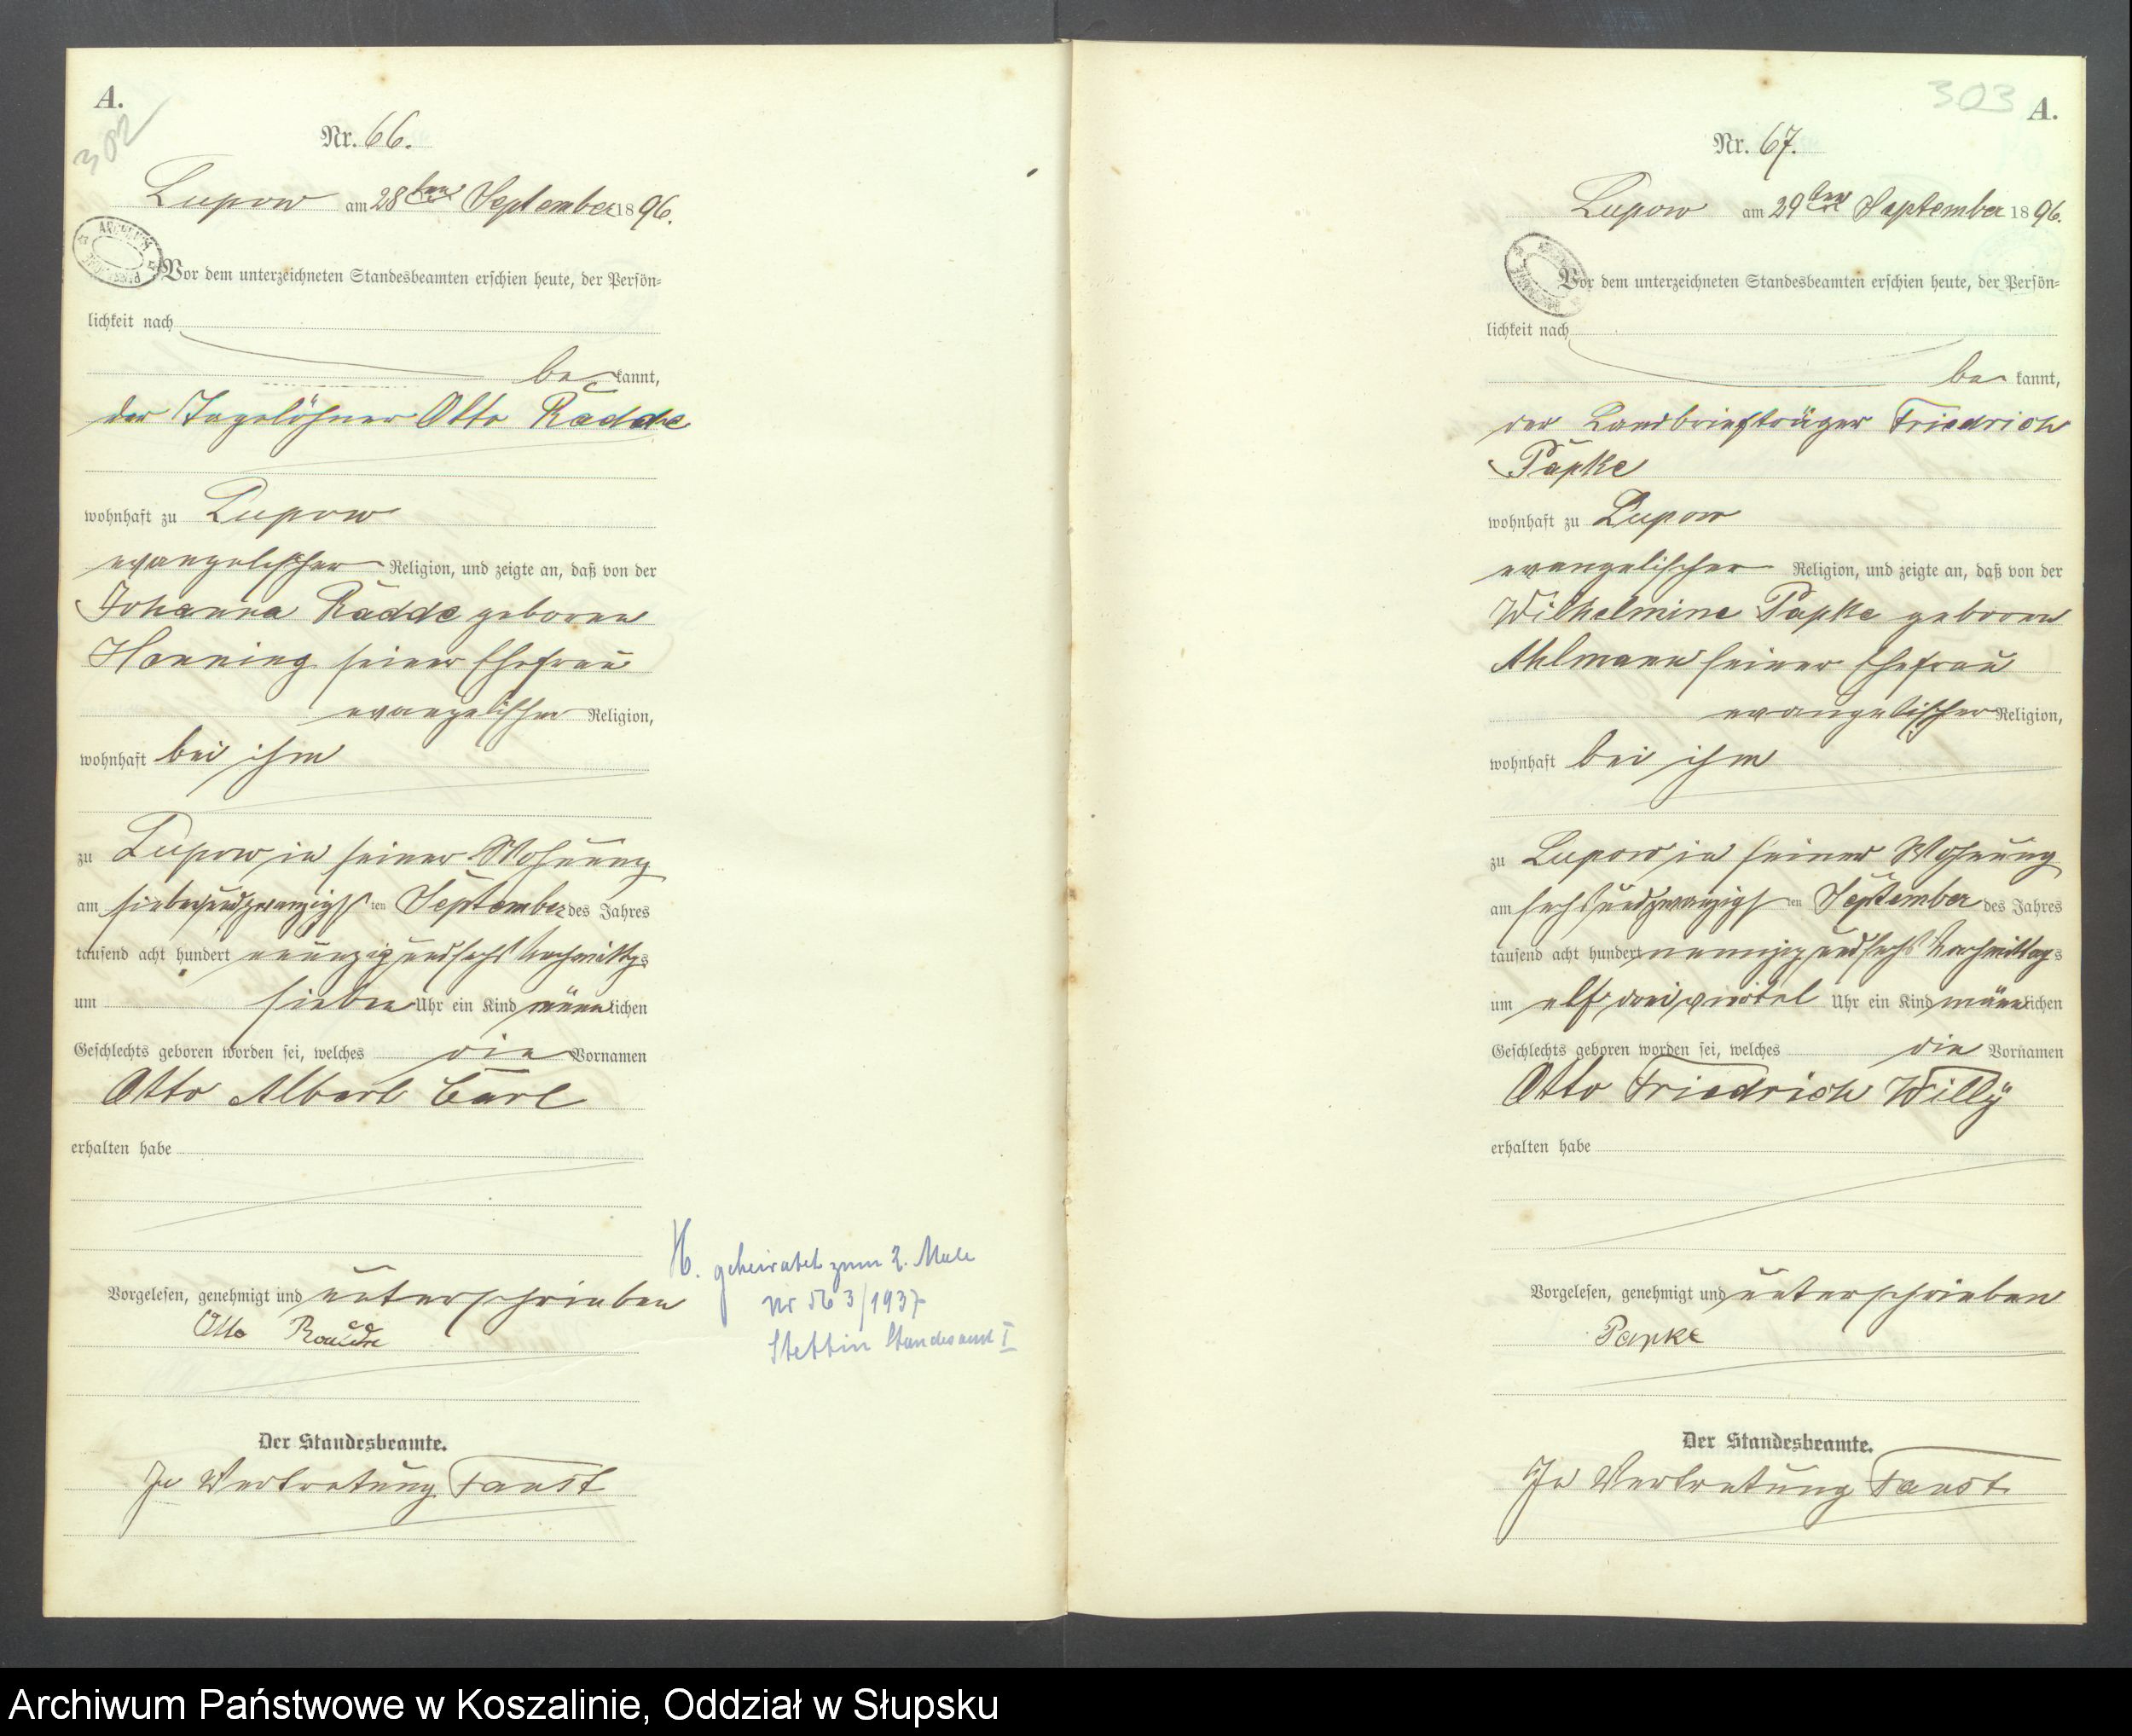 A.
302
Nr. 66.
Lupow am 28ten September 1896.
Vor dem unterzeichneten Standesbeamten erschien heute, der Persön-
lichkeit nach
be kannt,
der Tagelöhner Otto Radde
wohnhaft zu Lupow
evangelischer Religion, und zeigte an, daß von der
Johanna Radde geboren
Henning seiner Ehefrau
evangelischer Religion,
wohnhaft bei ihm
zu Lupow in seiner Wohnung
am siebenundzwanzigsten September des Jahres
tausend acht hundert neunzig und sechs Nachmittags
um sieben Uhr ein Kind männlichen
Geschlechts geboren worden sei, welches die Vornamen
Otto Albert Carl
erhalten habe
Vorgelesen, genehmigt und unterschrieben
Otto Radde
H. geheiratet zum 2. Male
Nr 563/1937
Stettin Standesamt I
Der Standesbeamte.
In Vertretung Faust
303 A.
Nr. 67.
Lupow am 29ten September 1896.
Vor dem unterzeichneten Standesbeamten erschien heute, der Persön-
lichkeit nach
be kannt,
der Landbriefträger Friedrich
Papke
wohnhaft zu Lupow
evangelischer Religion, und zeigte an, daß von der
Wilhelmine Papke geboren
Ahlmann seiner Ehefrau
evangelischer Religion,
wohnhaft bei ihm
zu Lupow in seiner Wohnung
am sechsundzwanzigsten September des Jahres
tausend acht hundert neunzig und sechs Nachmittags
um elf dreiviertel Uhr ein Kind männlichen
Geschlechts geboren worden sei, welches die Vornamen
Otto Friedrich Willy
erhalten habe
Vorgelesen, genehmigt und unterschrieben
Papke
Der Standesbeamte.
In Vertretung Faust
Archiwum Państwowe w Koszalinie, Oddział w Słupsku